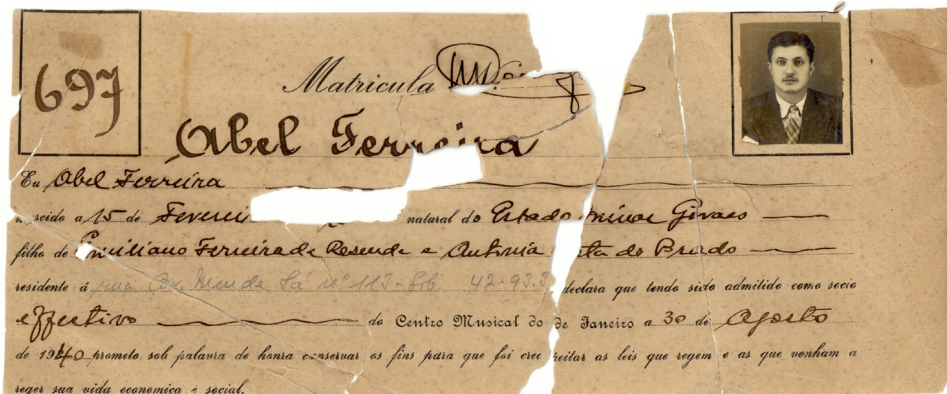 697
Matricula
Abel Ferreira
Eu Abel Ferreira
nascido a 15 de Feverei natural do Estado Minas Geraes
filho de Emiliano Ferreira de Resende e Antonia ta do Prado
residente á rua Mende Sá nº 115 - Sb. declara que tendo sido admitido como socio
effectivo do Centro Musical do de Janeiro a 30 de Agosto
de 1940 prometo sob palavra de honra conservar os fins para que foi crec peitar as leis que regem e as que venham a
reger sua vida economica e social.